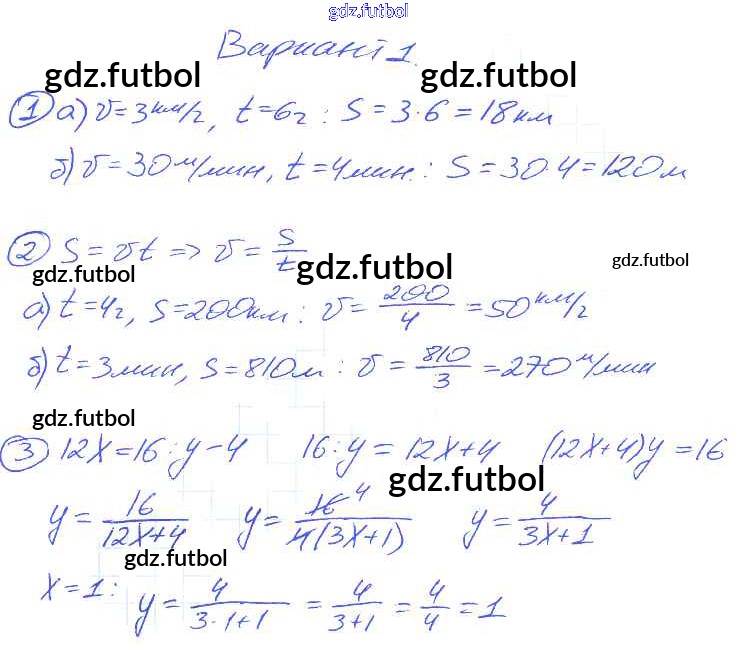 gdz.futbol
Вариант 1.
gdz.futbol gdz.futbol
① а) v=3км/г, t=6г : S=3·6=18км
б) v=30м/мин, t=4мин. : S=30·4=120м
② S=vt => v=S/t
gdz.futbol gdz.futbol gdz.futbol
а) t=4г, S=200км : v=200/4=50км/г
б) t=3мин, S=810м : v=810/3=270м/мин
gdz.futbol
③ 12x=16:y-4 16:y=12x+4 (12x+4)y=16
gdz.futbol
y=16/(12x+4) y=16 4/(4(3x+1)) y=4/(3x+1)
gdz.futbol
x=1: y=4/(3·1+1)=4/(3+1)=4/4=1